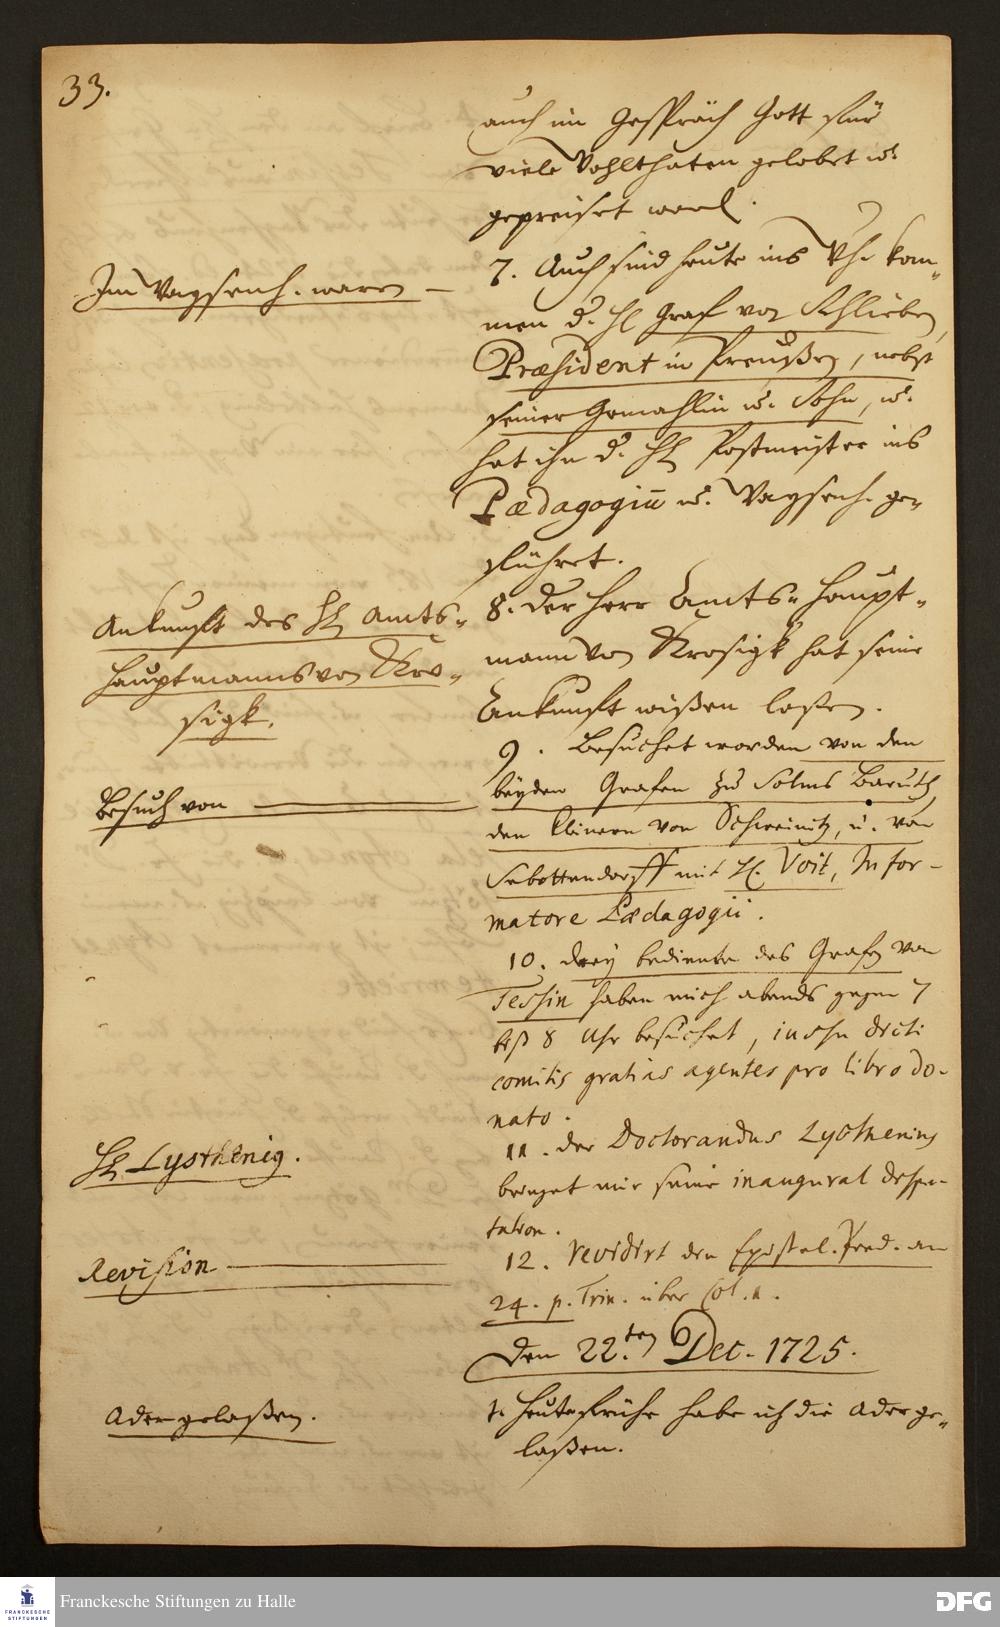 33.
auch im Gespräch Gott für
viele Wohlthaten gelobet u.
gepreiset ward.
Im Waysenh. waren —
7. Auch sind heute ins Wh. kom-
men d. H. Graf von Schlieben,
Præsident in Preußen, nebst
seiner Gemahlin u. Sohn, u.
hat ihn d. H. Postmeister ins
Pædagogiū u. Waysenh. ge-
führet.
Ankunfft des H. Amts-
Hauptmanns von Kro-
sigk.
8. Der Herr Amts-Haupt-
mann von Krosigk hat seine
Ankunfft wißen laßen.
Besuch von
9. Besuchet worden von den
beyden Grafen zu Solms Baruth,
den Kleinern von Schweinitz, u. von
Sebottendorff mit H. Voit, Infor-
matore Pædagogii.
10. drey bediente des Grafen von
Tessin haben mich abends gegen 7
biß 8 Uhr besuchet, iussu dicti
comitis gratias agentes pro libro do-
nato.
H. Lysthenig.
11. der Doctorandus Lysthenius
bringet mir seine inaugural dispu-
tation.
Revision
12. revidirt den Epistel. Pred. am
24. p. Trin. über Col. 1.
Den 22.ten Dec. 1725.
Ader gelaßen.
1. Heute frühe habe ich die Ader ge-
laßen.
FRANCKESCHE STIFTUNGEN
Franckesche Stiftungen zu Halle
DFG